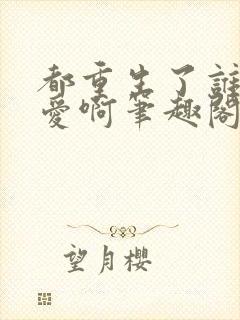 都重生了誰
愛啊筆趣閣
望月櫻